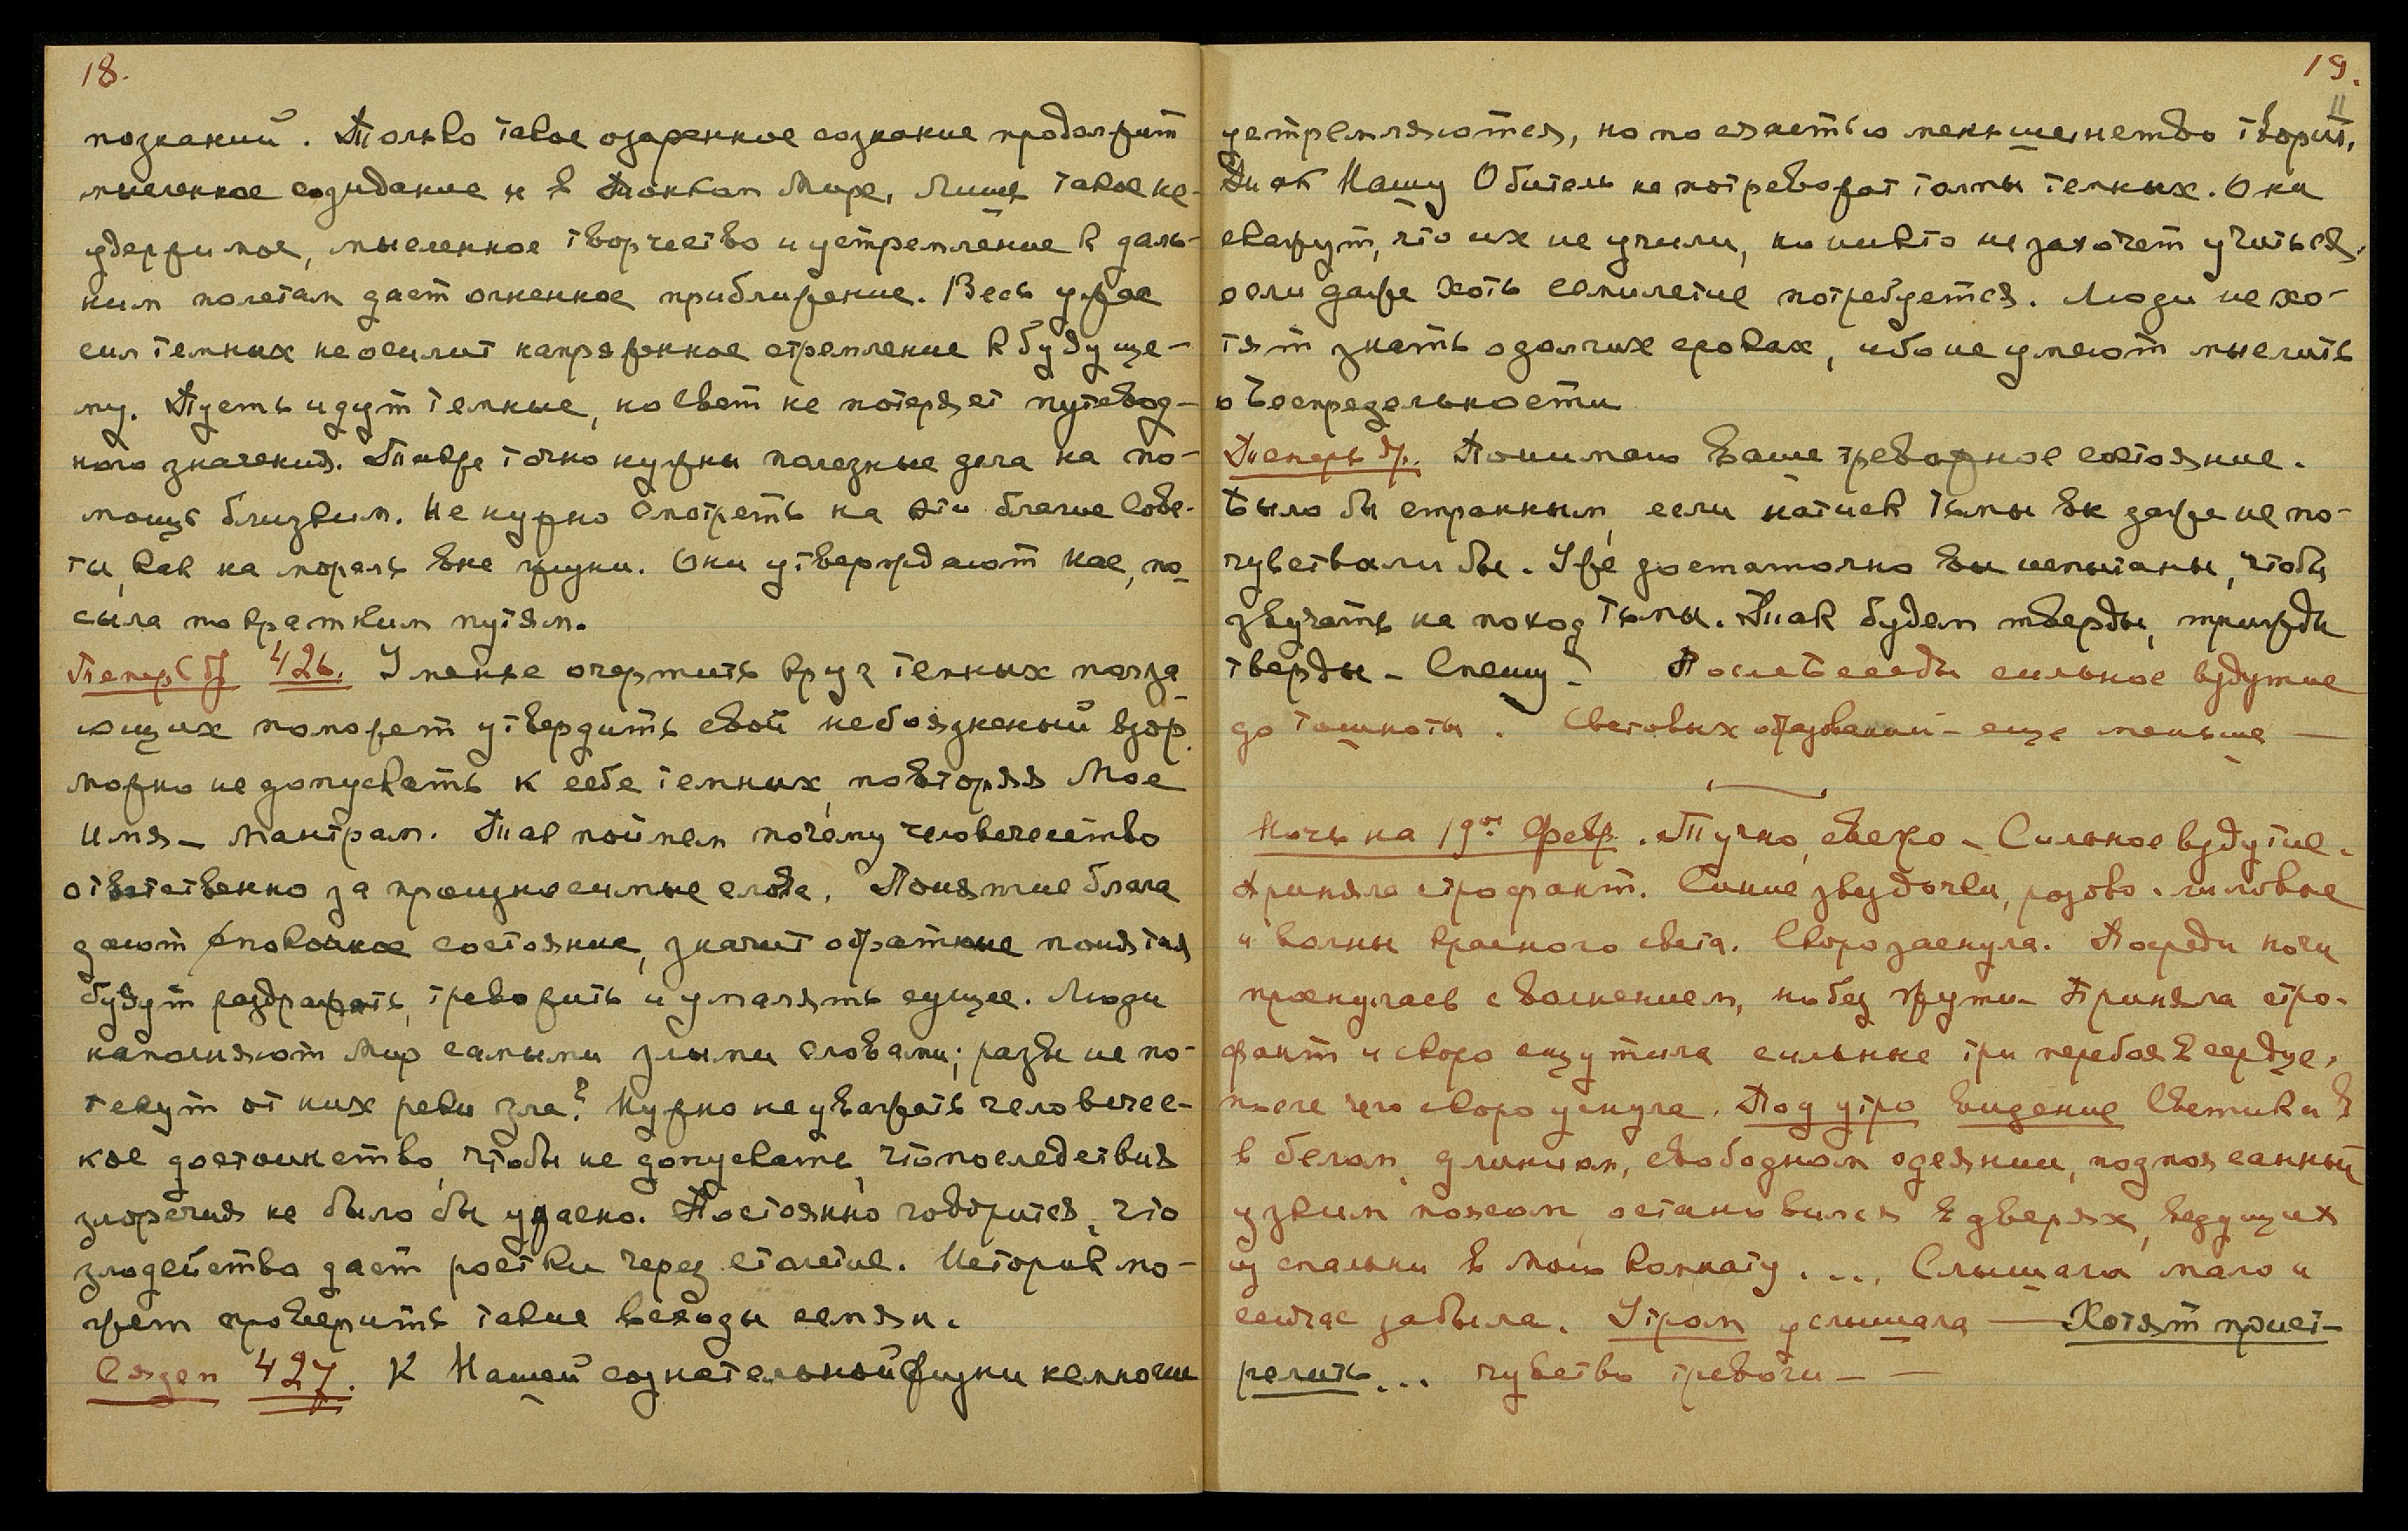 18.
познаний. Только такое озаренное сознание продолжит
мысленное созидание и в Тонком Мире. Лишь такое не-
удержимое, мысленное творчество и устремление к даль-
ним полетам дает огненное приближение. Весь ужас
сил темных не осилит напряженное стремление к будуще-
му. Пусть идут темные, но свет не потеряет путевод-
ного значения. Также точно нужны полезные дела на по-
мощь близким. Не нужно смотреть на эти благие Сове-
ты, как на мораль вне жизни. Они утверждают Нас, по-
сыла по кратким путям.
Теперь др 426. Умение очертить круг темных полза-
ющих поможет утвердить свой небоязненный взор.
Можно не допускать к себе темных, повторяя Мое
Имя – Мантрам. Так поймем почему человечество
ответственно за произносимые слова. Понятие блага
дают спокойное состояние, значит обратные понятия
будут раздражать, тревожить и умалять сущее. Люди
наполняют Мир самыми злыми словами; разве не по-
текут от них реки зла? Нужно не уважать человечес-
кое достоинство, чтобы не допускать, что последствия
злоречия не было бы ужасно. Постоянно говорится, что
злодейство дает ростки через столетие. Историк мо-
жет проверить такие всходы семян.
Сядем 427. К Нашей сознательной жизни немногие
19.
11
устремляются, но по счастью меньшенство творит,
Так Нашу Обитель не потревожат толпы темных. Они
скажут, что их не учили, но никто не захочет учиться,
если даже хоть семилетие потребуется. Люди не хо-
тят знать о долгих сроках, ибо не умеют мыслить
о Беспредельности
Теперь др. Понимаю Ваше тревожное состояние.
Было бы странным, если натиск тьмы Вы даже не по-
чувствовали бы. Уже достаточно Вы испытаны, чтобы
звучать на поход тьмы. Так будем тверды, трижды
тверды – Спешу – После Беседы сильное вздутие
до тошноты. Световых образований – еще меньше –
Ночь на 19ое Февр. Тучно, свежо – Сильное вздутие.
Приняла строфант. Синие звездочки, розово-лиловые
и волны красного света. Скоро заснула. Посреди ночи
проснулась с волнением, но без жути – Приняла стро-
фант и скоро ощутила сильные три перебоя в сердце,
после чего скоро уснула. Под утро видение Светика Я
в белом, длинном, свободном одеянии, подпоясанный
узким поясом, остановился в дверях, ведущих
из спальни в мою комнату. ... Слышала мало и
сейчас забыла. Утром услышала — Хотят прист-
релить... чувство тревоги – –